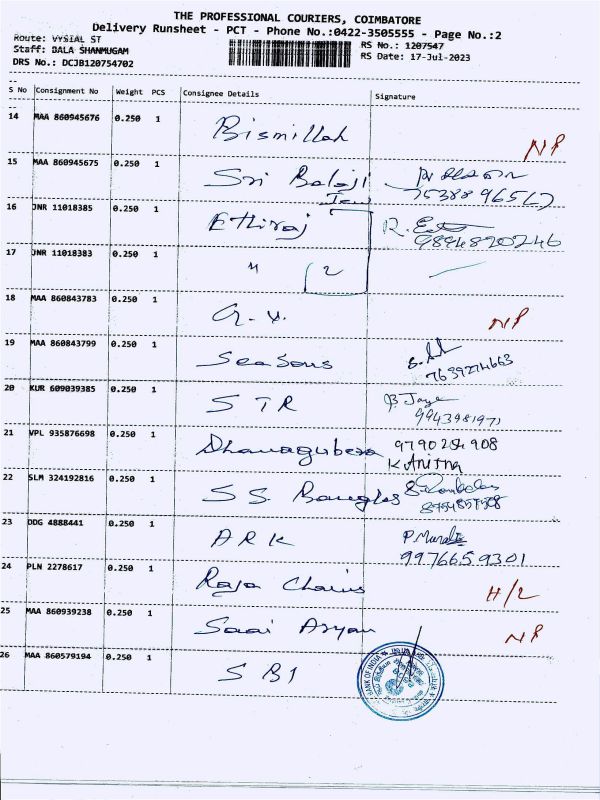 THE PROFESSIONAL COURIERS, COIMBATORE
Delivery Runsheet - PCT - Phone No.:0422-3505555 - Page No.:2
Route: VYSIAL ST
RS No.: 1207547
Staff: BALA SHANMUGAM
RS Date: 17-Jul-2023
DRS No.: DCJB120754702
S No Consignment No Weight PCS Consignee Details Signature
14 MAA 860945676 0.250 1 Bismillah NP
15 MAA 860945675 0.250 1 Sri Balaji
16 JNR 11018385 0.250 1 Ethiraj R.
9894820246
17 JNR 11018383 0.250 1 " 2
18 MAA 860843783 0.250 1 NP
19 MAA 860843799 0.250 1 Seasons
7639274663
20 KUR 609039385 0.250 1 STR B. Jaye
9943981971
21 VPL 935876698 0.250 1 Dhanagubera
K. Anitha
22 SLM 324192816 0.250 1 S S. Bangles
23 DDG 4888441 0.250 1 ARK P. Murali
9976659301
24 PLN 2278617 0.250 1 Raja Chains H/2
25 MAA 860939238 0.250 1 Saai Aryan NP
26 MAA 860579194 0.250 1 SBI
BANK OF INDIA